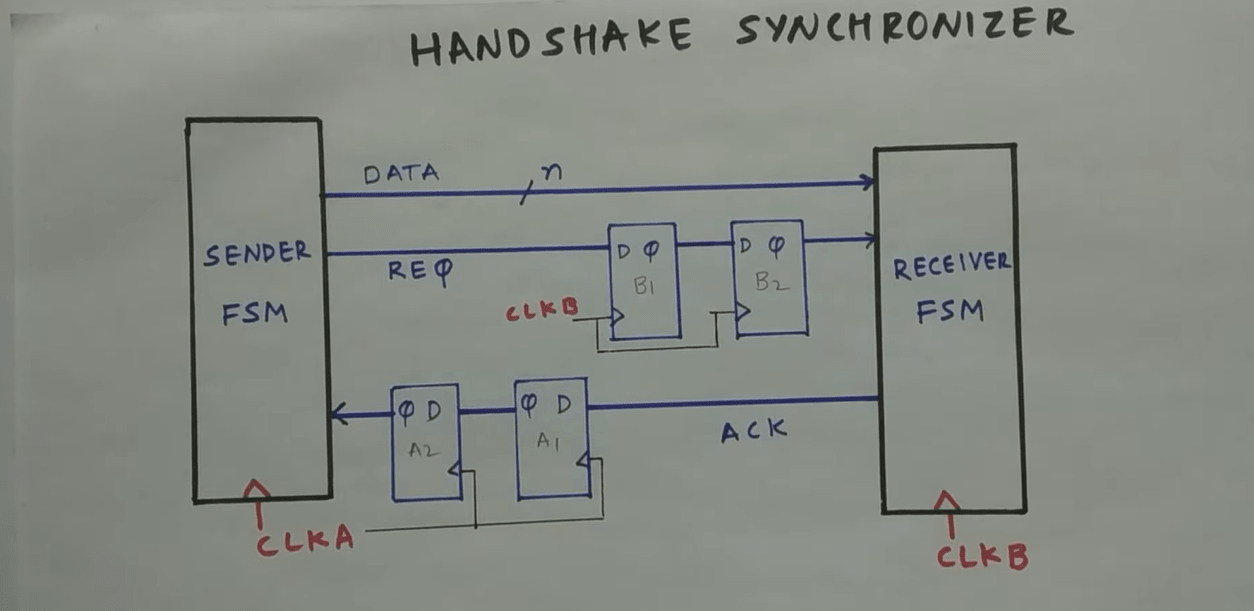 HANDSHAKE SYNCHRONIZER
DATA
n
SENDER
FSM
REQ
D Q
B1
D Q
B2
RECEIVER
FSM
CLKB
Q D
A2
Q D
A1
ACK
CLKA
CLKB